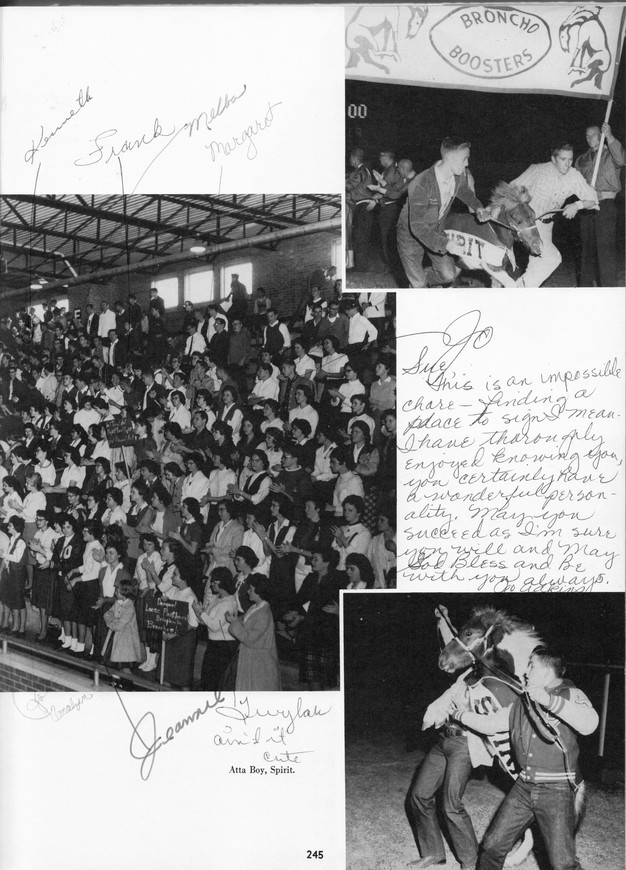 BRONCHO
BOOSTERS
00
Kenneth
Frank
Melba
Margaret
RIT
Sue Jo
This is an impossible
chore — finding a
place to sign I mean.
I have thoroughly
enjoyed knowing you,
you certainly have
a wonderful person-
ality. May you
succeed as I'm sure
you will and May
God Bless and Be
with you always.
Jo Adkins
Jeannie
Twylah
ain't it
cute
Atta Boy, Spirit.
245